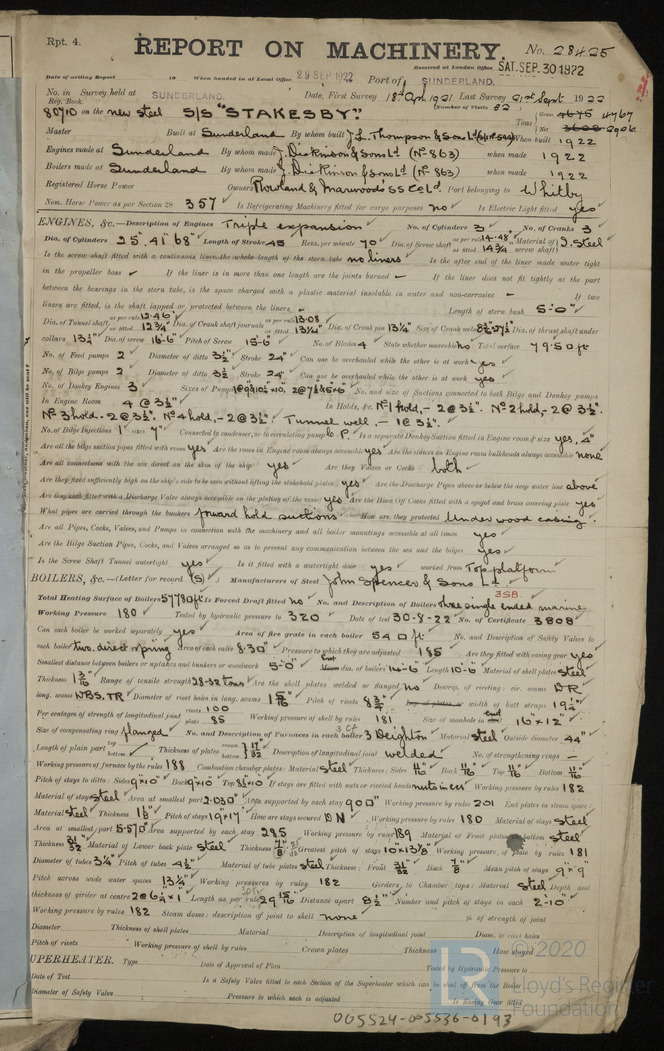 Rpt. 4.
REPORT ON MACHINERY. No. 28425
Received at London Office SAT. SEP. 30 1922
Date of writing Report 19 When handed in at Local Office 29 SEP. 1922 Port of SUNDERLAND.
No. in Survey held at SUNDERLAND. Date, First Survey 18th Apl. 1921 Last Survey 21st Sept 1922
Reg. Book. (Number of Visits 52
80710 on the new steel S/S "STAKESBY." Tons Gross 4675 4767 Net 3608 2906
Master Built at Sunderland By whom built J.L. Thompson & Sons Ld (No 544) When built 1922
Engines made at Sunderland By whom made J. Dickinson & Sons Ld (No 863) when made 1922
Boilers made at Sunderland By whom made J. Dickinson & Sons Ld (No 863) when made 1922
Registered Horse Power Owners Rowland & Marwood's SS Co Ld. Port belonging to Whitby
Nom. Horse Power as per Section 28 357 Is Refrigerating Machinery fitted for cargo purposes no Is Electric Light fitted yes
ENGINES, &c.—Description of Engines Triple expansion No. of Cylinders 3 No. of Cranks 3
Dia. of Cylinders 25" 41" 68" Length of Stroke 45 Revs. per minute 70 Dia. of Screw shaft as per rule 14.48" as fitted 14 3/4 Material of screw shaft I. Steel
Is the screw shaft fitted with a continuous liner the whole length of the stern tube no liners Is the after end of the liner made water tight
in the propeller boss – If the liner is in more than one length are the joints burned – If the liner does not fit tightly at the part
between the bearings in the stern tube, is the space charged with a plastic material insoluble in water and non-corrosive – If two
liners are fitted, is the shaft lapped or protected between the liners – Length of stern bush 5'-0"
Dia. of Tunnel shaft as per rule 12.46" as fitted 12 3/4 Dia. of Crank shaft journals as per rule 13.08 as fitted 13 1/4" Dia. of Crank pin 13 1/4" Size of Crank webs 8 1/2" 27 1/2 Dia. of thrust shaft under
collars 13 1/4" Dia. of screw 16-6" Pitch of Screw 15-6" No. of Blades 4 State whether moveable no Total surface 79.50 ft
No. of Feed pumps 2 Diameter of ditto 3 1/2" Stroke 24" Can one be overhauled while the other is at work yes
No. of Bilge pumps 2 Diameter of ditto 3 1/2 Stroke 24" Can one be overhauled while the other is at work yes
No. of Donkey Engines 3 Sizes of Pumps No. and size of Suctions connected to both Bilge and Donkey pumps
In Engine Room 4 @ 3 1/2" In Holds, &c. No 1 hold, – 2 @ 3 1/2". No 2 hold, – 2 @ 3 1/2".
No 3 hold. – 2 @ 3 1/2". No 4 hold, – 2 @ 3 1/2". Tunnel well, – 1 @ 3 1/2".
No. of Bilge Injections 1 sizes 7" Connected to condenser, or to circulating pump C.P. Is a separate Donkey Suction fitted in Engine room & size yes. 4"
Are all the bilge suction pipes fitted with roses yes Are the roses in Engine room always accessible yes Are the sluices on Engine room bulkheads always accessible none
Are all connections with the sea direct on the skin of the ship yes Are they Valves or Cocks both
Are they fixed sufficiently high on the ship's side to be seen without lifting the stokehold plates yes Are the Discharge Pipes above or below the deep water line above
Are they each fitted with a Discharge Valve always accessible on the plating of the vessel yes Are the Blow Off Cocks fitted with a spigot and brass covering plate yes
What pipes are carried through the bunkers forward hold suctions How are they protected Under wood casing.
Are all Pipes, Cocks, Valves, and Pumps in connection with the machinery and all boiler mountings accessible at all times yes
Are the Bilge Suction Pipes, Cocks, and Valves arranged so as to prevent any communication between the sea and the bilges yes
Is the Screw Shaft Tunnel watertight yes Is it fitted with a watertight door yes worked from Top platform
BOILERS, &c.—(Letter for record (S)) Manufacturers of Steel John Spencer & Sons Ld.
3SB.
Total Heating Surface of Boilers 5778 ft Is Forced Draft fitted no No. and Description of Boilers three single ended marine
Working Pressure 180 Tested by hydraulic pressure to 320 Date of test 30-8-22 No. of Certificate 3808
Can each boiler be worked separately yes Area of fire grate in each boiler 54.0 ft No. and Description of Safety Valves to
each boiler two direct spring Area of each valve 8.30" Pressure to which they are adjusted 185 Are they fitted with easing gear yes
Smallest distance between boilers or uptakes and bunkers or woodwork 5'-0" dia. of boilers 14-6" Length 10-6" Material of shell plates steel
Thickness 1 3/16" Range of tensile strength 28-32 tons Are the shell plates welded or flanged no Descrip. of riveting: cir. seams DR
long. seams DBS.TR Diameter of rivet holes in long. seams 1 5/16" Pitch of rivets 8 3/4" width of butt straps 19 1/4"
Per centages of strength of longitudinal joint rivets 100 plate 85 Working pressure of shell by rules 181 Size of manhole in end 16"x12"
Size of compensating ring flanged No. and Description of Furnaces in each boiler 3 Deighton Material steel Outside diameter 44"
Length of plain part top – bottom – Thickness of plates 17/32 Description of longitudinal joint welded No. of strengthening rings –
Working pressure of furnace by the rules 188 Combustion chamber plates: Material steel Thickness: Sides 11/16" Back 11/16" Top 11/16" Bottom 11/16"
Pitch of stays to ditto: Sides 9x10" Back 9x10" Top 8 1/2x10" If stays are fitted with nuts or riveted heads nuts inside Working pressure by rules 182
Material of stays steel Area at smallest part 2.030" Area supported by each stay 90.0" Working pressure by rules 201 End plates in steam space:
Material steel Thickness 1 1/8" Pitch of stays 19"x17" How are stays secured DN Working pressure by rules 180 Material of stays steel
Area at smallest part 5.570" Area supported by each stay 285 Working pressure by rules 189 Material of Front plates bottom steel
Thickness 31/32" Material of Lower back plate steel Thickness 7/8" Greatest pitch of stays 10"x13 7/8" Working pressure of plate by rules 181
Diameter of tubes 3 1/4" Pitch of tubes 4 1/2" Material of tube plates steel Thickness: Front 31/32 Back 7/8" Mean pitch of stays 9"x9"
Pitch across wide water spaces 13 3/4" Working pressures by rules 182 Girders to Chamber tops: Material steel Depth and
thickness of girder at centre 2@6 3/4"x1" Length as per rule 29 15/16" Distance apart 8 1/2" Number and pitch of stays in each 2-10"
Working pressure by rules 182 Steam dome: description of joint to shell none % of strength of joint
Diameter Thickness of shell plates Material Description of longitudinal joint Diam. of rivet holes
Pitch of rivets Working pressure of shell by rules Crown plates Thickness How stayed
UPERHEATER. Type Date of Approval of Plan Tested by Hydraulic Pressure to
Date of Test Is a Safety Valve fitted to each Section of the Superheater which can be shut off from the Boiler
Diameter of Safety Valve Pressure to which each is adjusted Is Easing Gear fitted
© 2020
LR Lloyd's Register
Foundation
005524-005536-0193